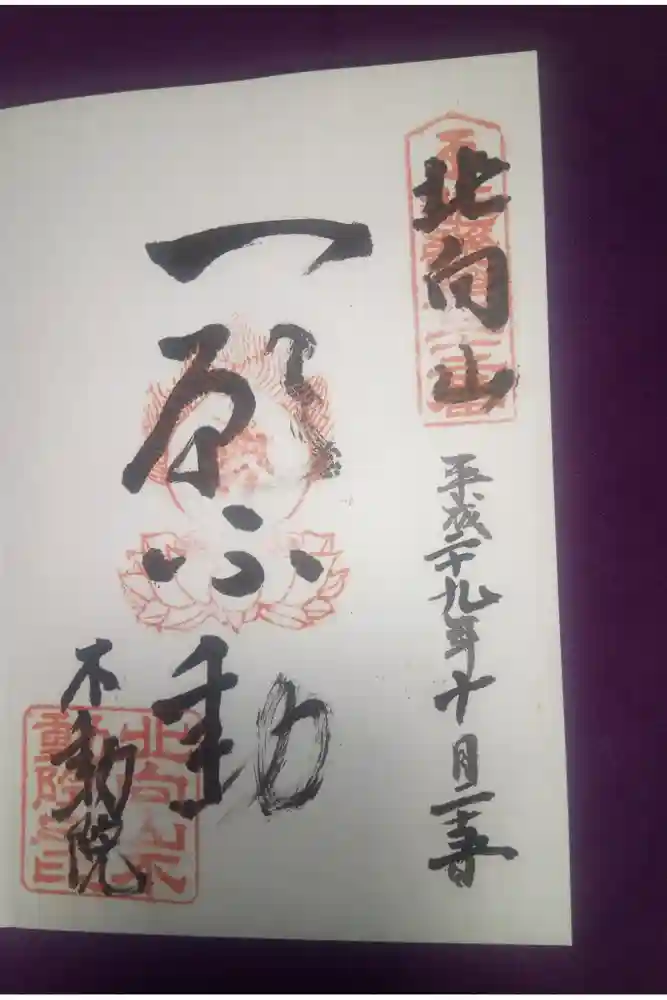 北向山
平成二十九年十月二十五日
一願不動
不動院
北向山不動院之印